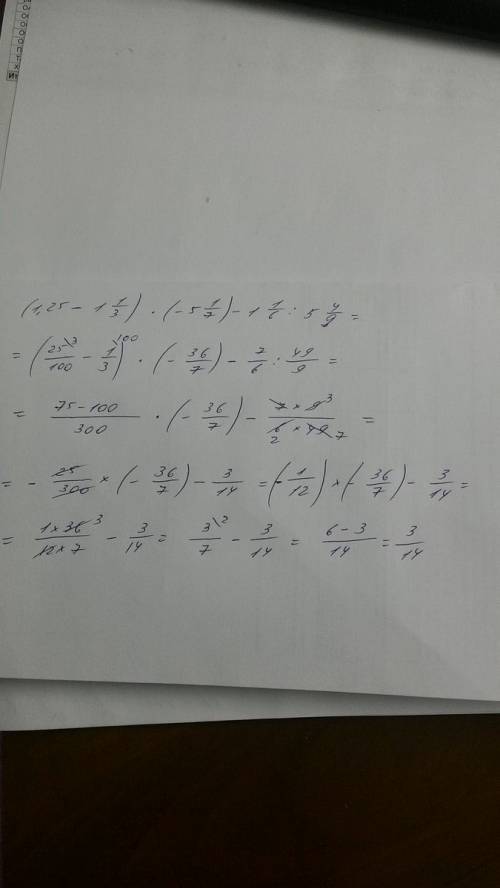 (1,25 - 1 1/3) · (-5 1/7) - 1 1/6 : 5 4/9 =
= (25\3/100 - 1\100/3) · (- 36/7) - 7/6 : 49/9 =
= 75-100/300 · (- 36/7) - 7 × 9 3/6 2 × 49 7 =
= - 25/300 × (- 36/7) - 3/14 = (- 1/12) × (- 36/7) - 3/14 =
= 1 × 36 3/12 × 7 - 3/14 = 3\2/7 - 3/14 = 6-3/14 = 3/14